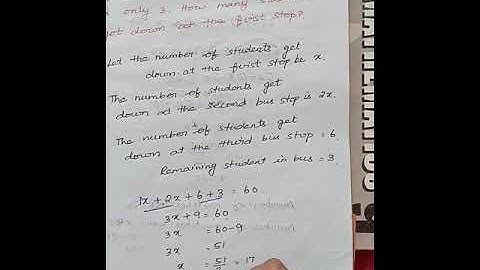 is only 3. How many
got down at the first stop?
Let the number of students get
down at the first stop be x.
The number of students get
down at the second bus stop is 2x.
The number of students get
down at the third bus stop = 6.
Remaining student in bus = 3.
1x + 2x + 6 + 3 = 60.
3x + 9 = 60
3x = 60 - 9
3x = 51
x = 51 = 17
MATHEMATICS